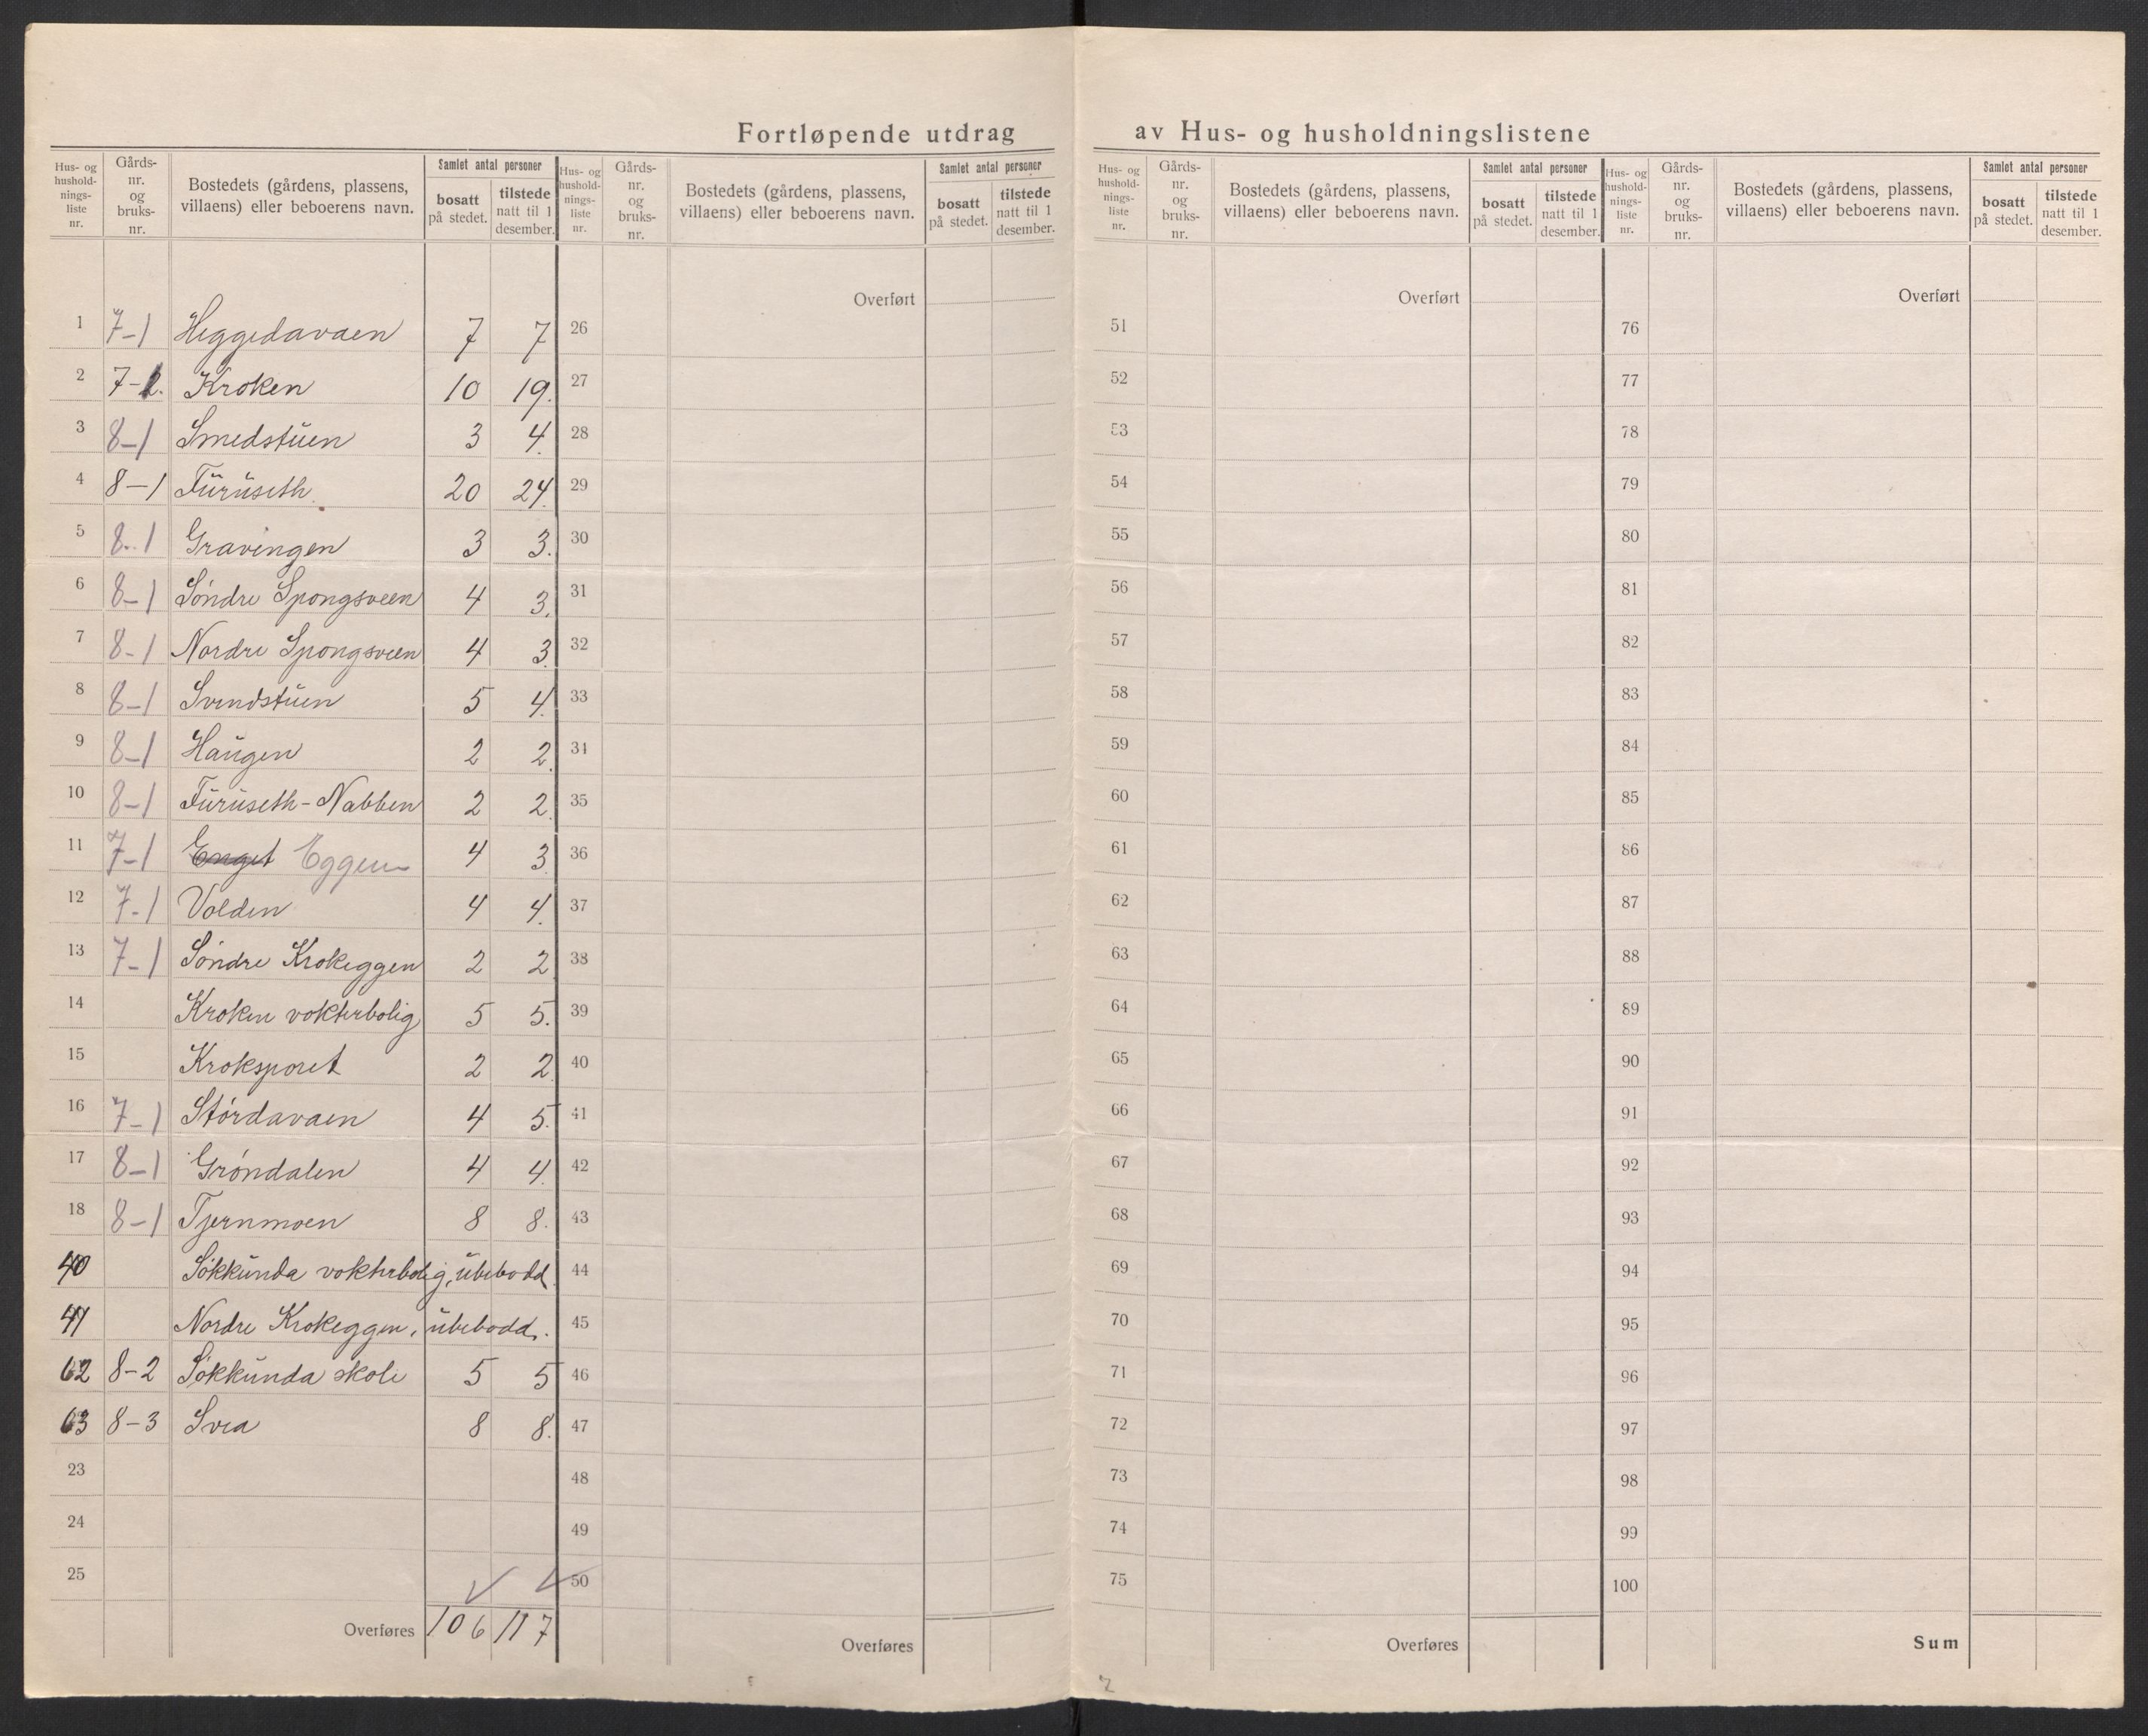 Fortløpende utdrag av Hus- og husholdningslistene
Hus- og hushold-nings-liste nr. Gårds-nr. og bruks-nr. Bostedets (gårdens, plassens, villaens) eller beboerens navn. Samlet antal personer bosatt på stedet. tilstede natt til 1 desember.
1 7-1 Heggedavaen 7 7
2 7-2. Kroken 10 19.
3 8-1 Smedstuen 3 4.
4 8-1 Furuseth 20 24.
5 8-1 Gravingen 3 3.
6 8-1 Søndre Spongsveen 4 3.
7 8-1 Nordre Spongsveen 4 3.
8 8-1 Svendstuen 5 4.
9 8-1 Haugen 2 2.
10 8-1 Furuseth-Nabben 2 2.
11 7-1 Enget Eggen 4 3.
12 7-1 Volden 4 4.
13 7-1 Søndre Krokeggen 2 2
14 Kroken vokterbolig 5 5.
15 Ároksporet 2 2
16 7-1 Stórdavaen 4 5.
17 8-1 Grøndalen 4 4.
18 8-1 Tjernmoen 8 8.
40 Søkkunda vokterbolig, ubebodd
41 Nordre Krokeggen, ubebodd.
62 8-2 Søkkunda skole 5 5
63 8-3 Svea 8 8.
23
24
25
Overføres 106 117
Hus- og hushold-nings-liste nr. Gårds-nr. og bruks-nr. Bostedets (gårdens, plassens, villaens) eller beboerens navn. Samlet antal personer bosatt på stedet. tilstede natt til 1 desember.
Overført
26
27
28
29
30
31
32
33
34
35
36
37
38
39
40
41
42
43
44
45
46
47
48
49
50
Overføres
Hus- og hushold-nings-liste nr. Gårds-nr. og bruks-nr. Bostedets (gårdens, plassens, villaens) eller beboerens navn. Samlet antal personer bosatt på stedet. tilstede natt til 1 desember.
Overført
51
52
53
54
55
56
57
58
59
60
61
62
63
64
65
66
67
68
69
70
71
72
73
74
75
Overføres
Hus- og hushold-nings-liste nr. Gårds-nr. og bruks-nr. Bostedets (gårdens, plassens, villaens) eller beboerens navn. Samlet antal personer bosatt på stedet. tilstede natt til 1 desember.
Overført
76
77
78
79
80
81
82
83
84
85
86
87
88
89
90
91
92
93
94
95
96
97
98
99
100
Sum
2